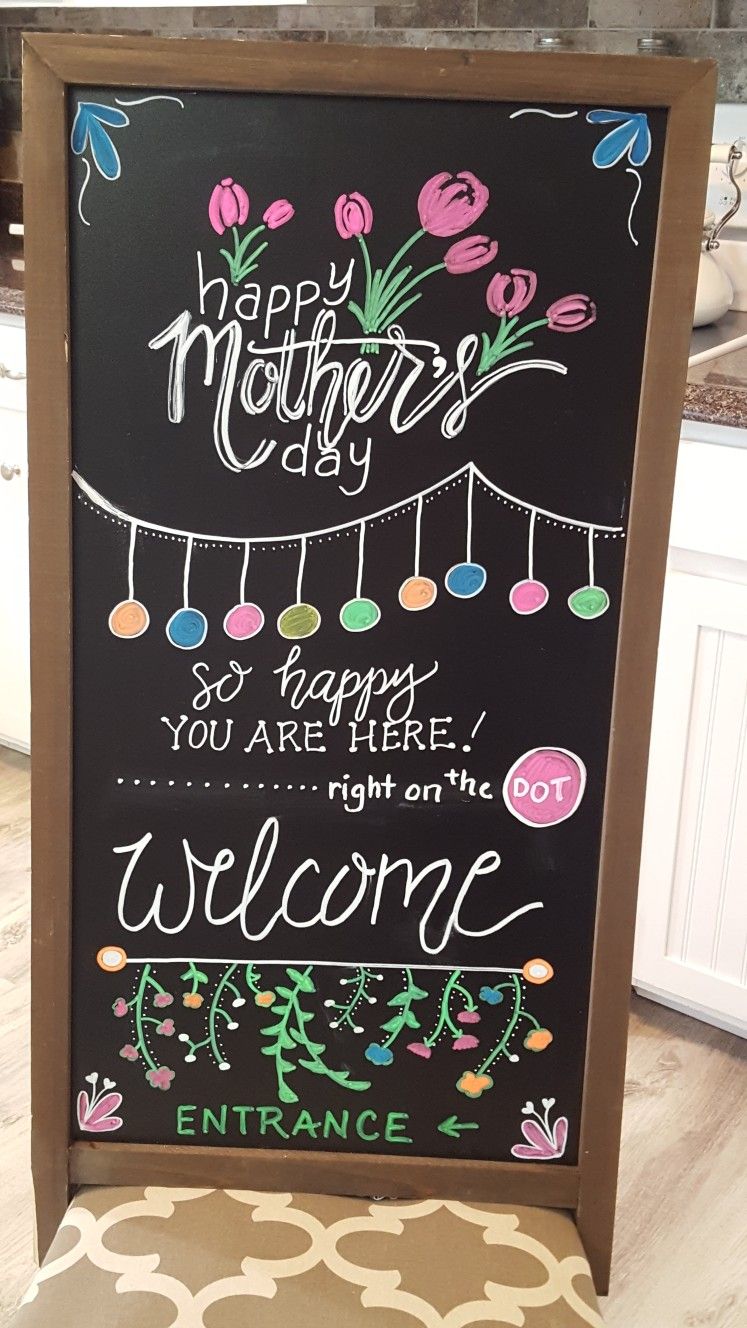 happy
Mother's
day
so happy
YOU ARE HERE!
.............. right on the DOT
Welcome
ENTRANCE ←